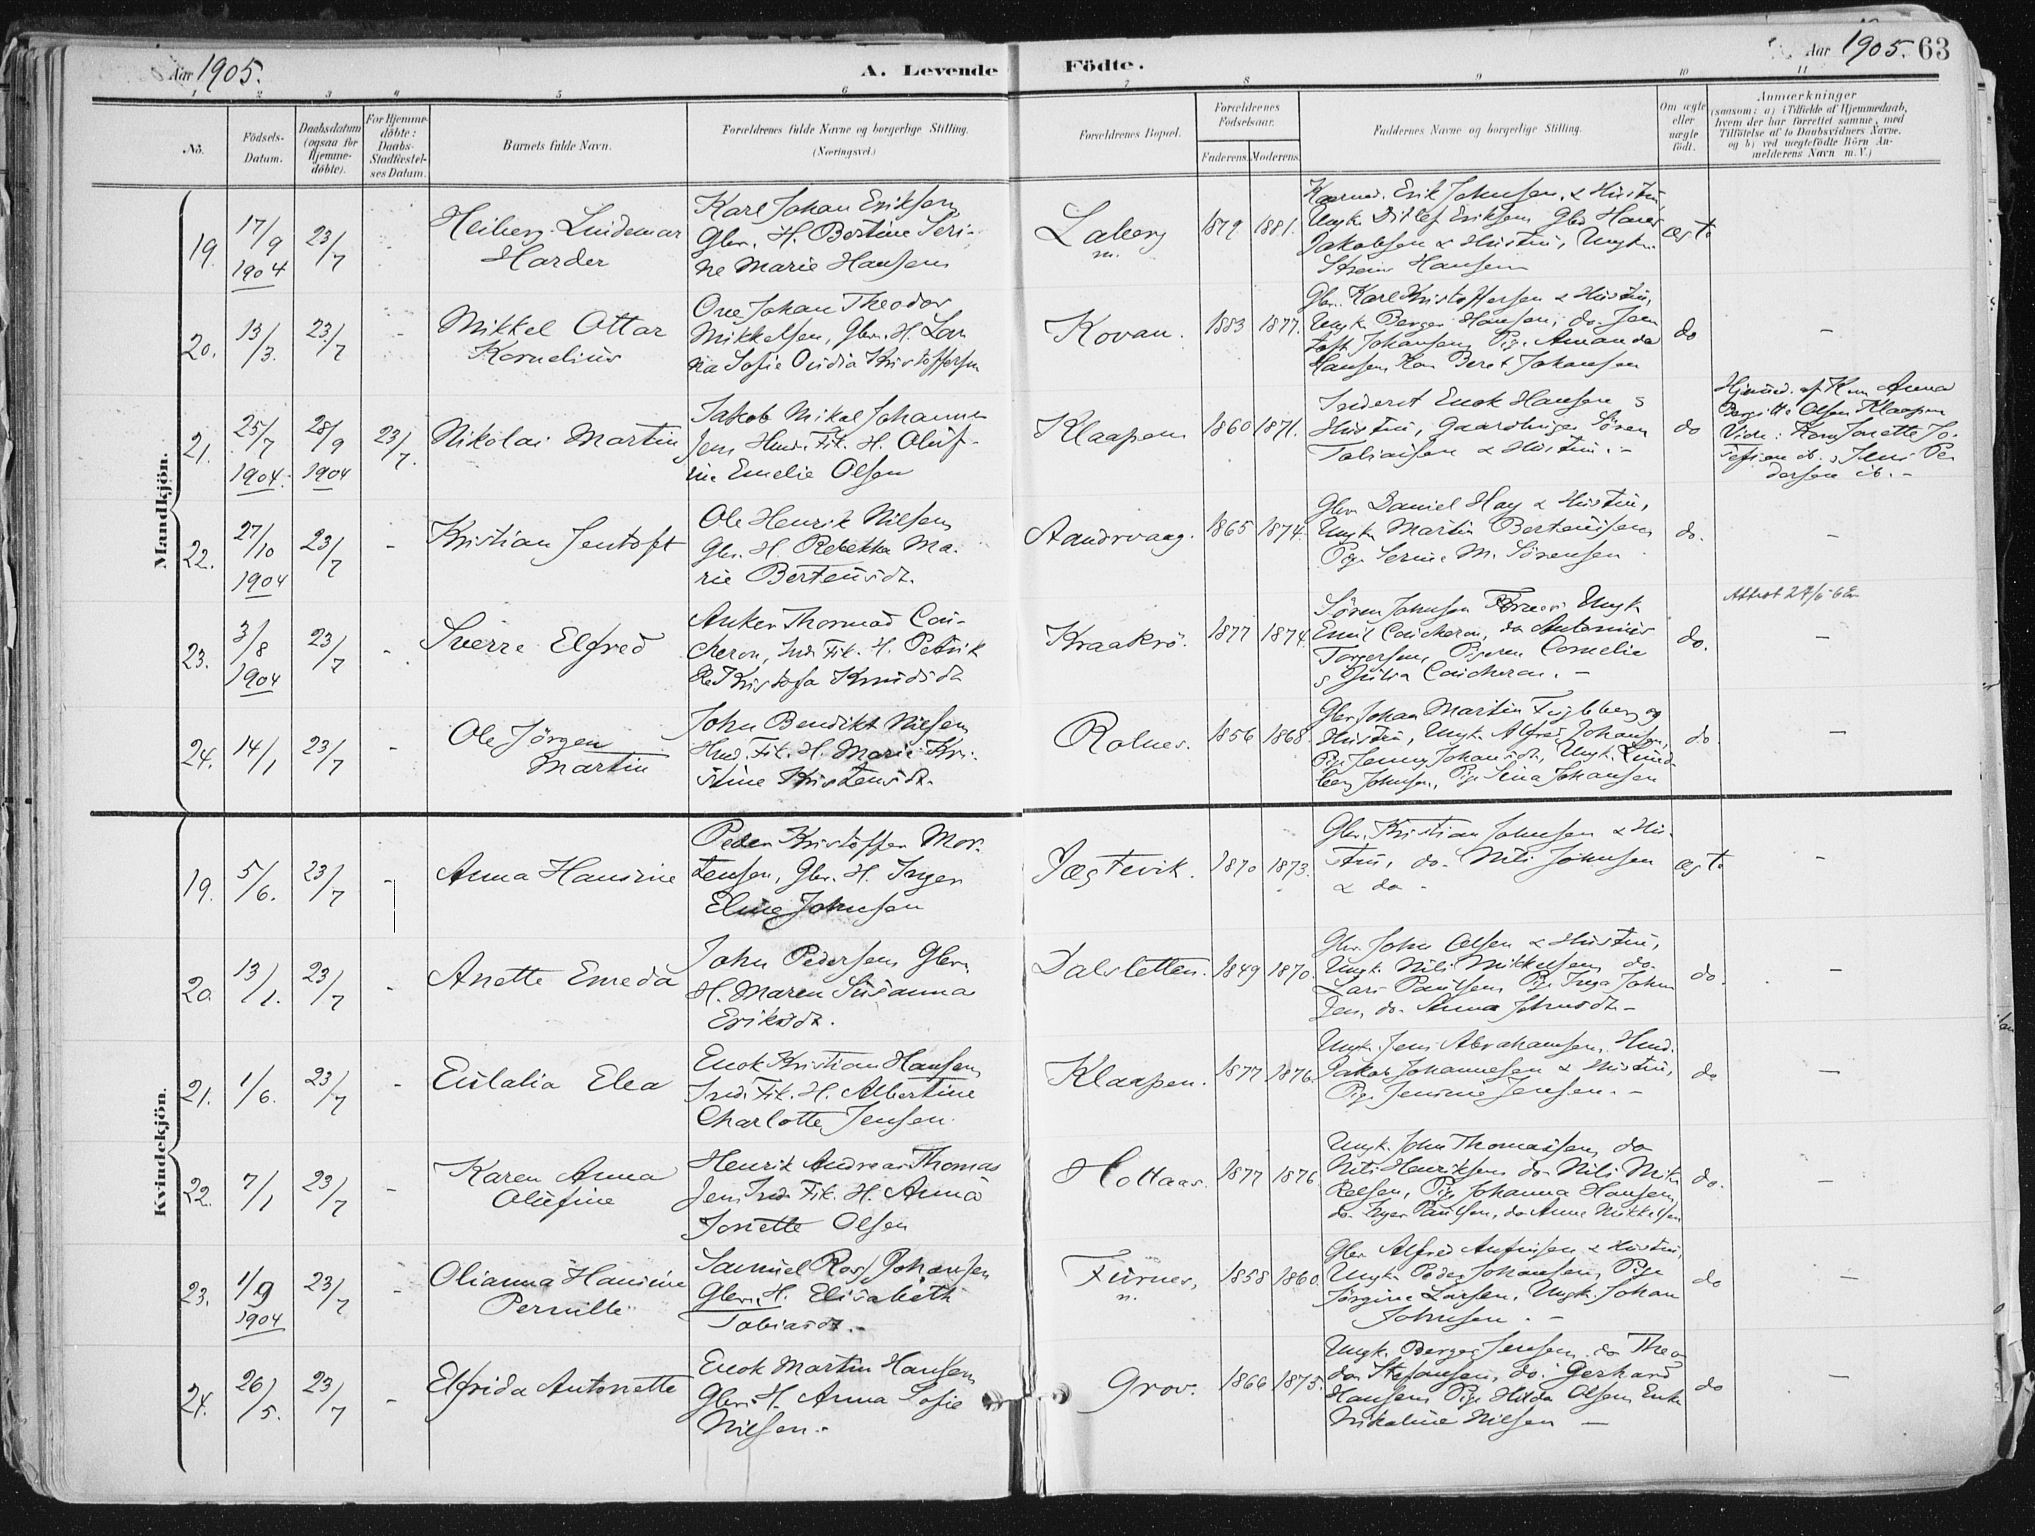 Aar 1905.
A. Levende Födte.
Aar 1905. 63
1 2 3 4 5 6 7 8 9 10 11
No.
Födsels-
Datum.
Daabsdatum
(ogsaa for
Hjemme-
döbte).
For Hjemme-
döbte:
Daabs-
Stadfæstel-
ses Datum.
Barnets fulde Navn.
Forældrenes fulde Navne og borgerlige Stilling.
(Næringsvei.)
Forældrenes Bopæl.
Forældrenes
Födselsaar.
Faderens. Moderens.
Faddernes Navne og borgerlige Stilling.
Om ægte
eller
uægte
födt.
Anmærkninger
(saasom: a) i Tilfælde af Hjemmedaab,
hvem der har forrettet samme, med
Tilföielse af to Daabsvidners Navne.
og b) ved uægtefödte Börn An-
melderens Navn m. V.)
Mandkjön.
19.
17/9
1904
23/7
Heiberg Lindemar
Harder
Karl Johan Eriksen
Gbr. H. Bertine Seri-
ne Marie Hansen
Laberg
1879 1881.
Erik Johnsen & Hustru,
Ungk. Ditlef Eriksen Gbr Hans
Jakobsen & Hustru, Ungk.
Hansen
ægte
20.
13/3.
23/7
-
Mikkel Ottar
Kornelius
One Johan Theodor
Mikkelsen, Gbr. H. Lov
na Sofie Ovidia Kristoffersen
Kovan.
1883 1877.
Gbr. Karl Kristoffersen & Hustru,
Ungk. Berger Hansen, do. Jen
toft Johansen Pige Amanda
Hansen Kone Berit Johansen
do
-
21.
25/7
1904.
28/9
1904
23/7.
Nikolai Martin
Jakob Mikal Johannes
sen Hmd. Fik. H. Oluf-
ine Emelie Olsen
Klaapen
1860 1871.
Inderst Enok Hansen &
Hustru, Gaardbruger Sören
Tobiassen & Hustru. -
do
Hjemd. af Kone Anna
Bergitte Olsen Klaapen
Vidn: Kone Jonette Jo-
sefsen ib. & Jens Pe
dersen ib. -
22.
27/10
1904
23/7
-
Kristian Jentoft
Ole Henrik Nilsen
Gbr. H. Rebekka Ma-
rie Berteusdt.
Aandrvaag.
1865 1874.
Gbr. Daniel Hay & Hustru,
Ungk. Martin Berteussen
Pige Serine M. Sörensen
do.
-
23.
3/8
1904
23/7
-
Sverre Elfred
Anker Thormod Cou-
cheron, Ind. Fik. H. Petrik
ke Kristofa Knudsdt
Kraakrö.
1877 1874.
Sören Johnsen Ungk
Emil Coucheron, do Antonius
Torgersen, Pigerne Cornelie
& Julia Coucheron. -
do.
Attest 27/6-6
-
24.
14/1
23/7
-
Ole Jörgen
Martin
John Bendikt Nilsen
Hmd. Fik. H. Marie Kri-
stine Kristensdt.
Rolnes.
1856 1868.
Gbr Johan Martin Fuglberg og
Hustru, Ungk. Alfred Johansen,
Pige Jenny Johansdt, Ungk. Lind-
berg Johnsen, Pige Sina Johansen
do
-
Kvindekjön.
19.
5/6.
23/7
-
Anna Hansine
Peder Kristoffer Mor-
tensen, Gbr. H. Inger
Eline Johnsen
Jægtevik.
1870 1873.
Gbr. Kristian Johnsen & Hu-
stru, do. Nils Johnsen
& do -
ægte
-
20.
13/1.
23/7
-
Anette Emeda
John Pedersen Gbr.
H. Maren Susanna
Eriksdt.
Dalsletten.
1849 1870.
Gbr. John Olsen & Hustru,
Ungk. Nils Mikkelsen, do
Lars Paulsen, Pige Inga Johan
sen, do. Anna Johnsdt. -
do.
-
21.
1/6.
23/7
-
Eulalia Elea
Enok Kristian Hansen
Ind. Fik. H. Albertine
Charlotte Jensen.
Klaapen.
1877 1876.
Ungk. Jens Abrahamsen, Hmd.
Jakob Johannesen & Hustru,
Pige Jensine Jensen. -
do
-
22.
7/1
23/7
-
Karen Anna
Olufine
Henrik Andreas Thomas
sen Ind. Fik. H. Anna
Jonette Olsen
Hollaas.
1877 1876.
Ungk. John Thomassen, do
Nils Henriksen do Nils Mik
kelsen, Pige Johanna Hansen,
do. Inger Paulsen, do Anne Mikkelsen
do.
-
23.
1/9
1904
23/7
-
Olianna Hansine
Pernille
Samuel Ross Johansen
Gbr. H. Elisabeth
Tobiasdt. -
Furnes,
n.
1858 1860.
Gbr Alfred Antonsen & Hustru,
Ungk. Peder Johansen, Pige
Jörgine Larsen, Ungk. Johan
Johnsen. -
do
-
24.
26/5.
23/7
-
Elfrida Antonette
Enok Martin Hansen
Gbr. H. Anna Sofie
Nilsen. -
Grov.
1866 1875.
Ungk. Berger Jensen, do Theo
dor Stefansen, do. Gerhard
Hansen, Pige Hilda Olsen, Enke
Nikoline Nilsen -
do
-